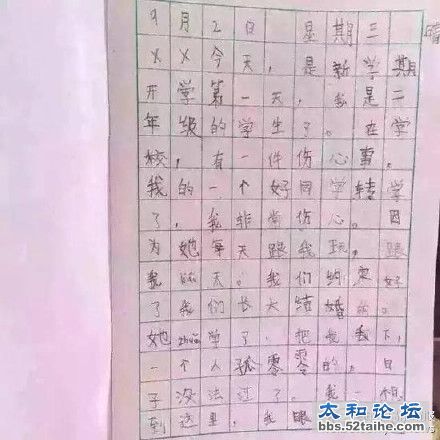 9月2日 星期三 晴
XX今天，是新学期
开学第一天，我是二
年级的学生了。在学
校，有一件伤心事。
我的一个好同学转学
了，我非常伤心。因
为她每天跟我玩，跟
我 天。我们约定好
了我们长大结婚的。
她zhuan学了，把我 下，
一个人孤零零的。日
子没法过了。我一想
到这里，我眼
太和论坛
bbs.52taihe.com